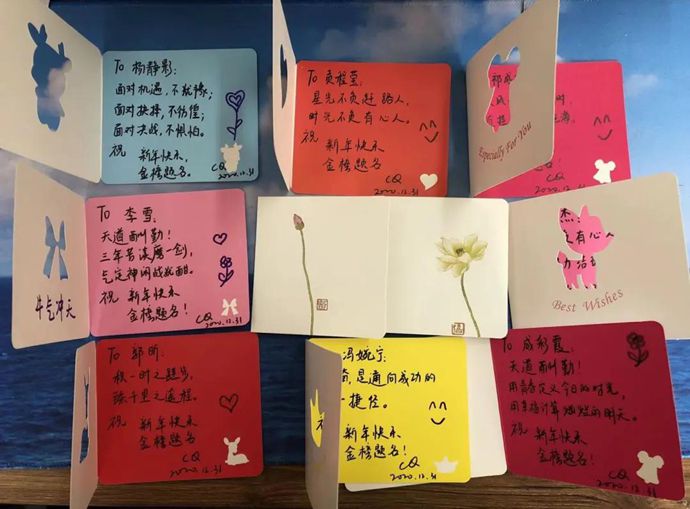 To 杨静影:
面对机遇,不犹豫;
面对抉择,不彷徨;
面对决战,不惧怕。
祝 新年快乐
金榜题名。
CQ
2020.12.31
To 贠程莹:
星光不负赶路人,
时光不负有心人。
祝 新年快乐
金榜题名
CQ
2020.12.31
Especially For You
2020.12.31
牛气冲天
To 李雪:
天道酬勤!
三年苦读磨一剑,
气定神闲战犹酣。
祝 新年快乐
金榜题名!
CQ
2020.12.31
杰:
有心人
Best Wishes
To 郭昕:
积一时之跬步,
臻千里之遥程。
祝 新年快乐
金榜题名!
CQ
2020.12.31
冯婉宁:
是通向成功的
捷径。
新年快乐
金榜题名!
CQ
2020.12.31
To 成彩霞:
天道酬勤!
用青春定义今日的时光,
用来计算燃烧的明天。
祝 新年快乐
金榜题名!
CQ
2020.12.31